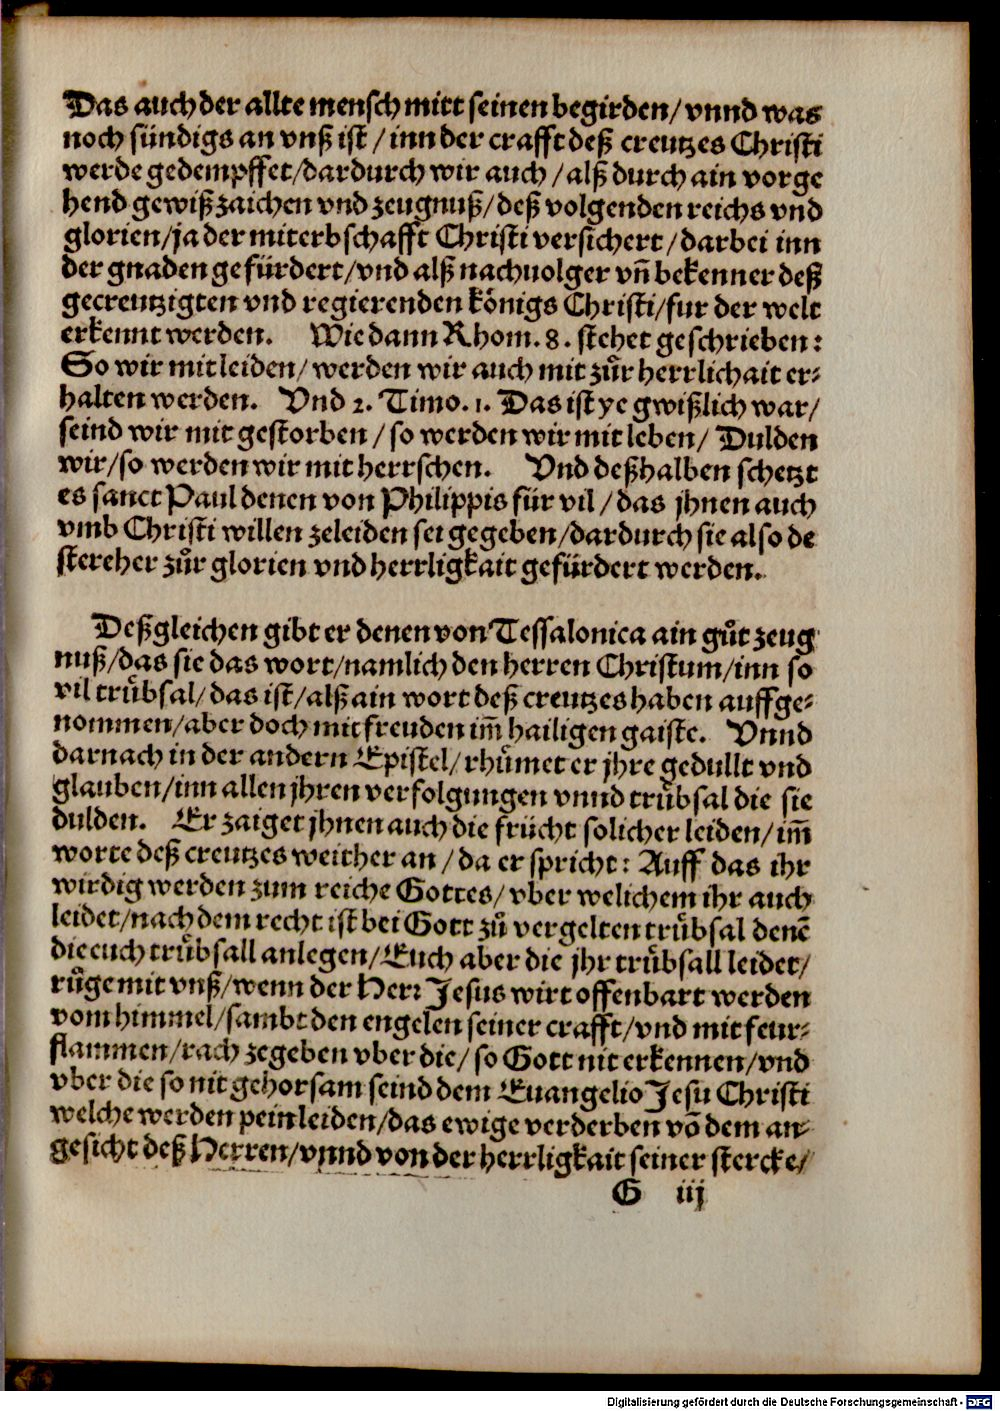 Das auch der allte mensch mitt seinen begirden/ vnnd was
noch sündigs an vnß ist / inn der crafft deß creutzes Christi
werde gedempffet/dardurch wir auch / alß durch ain vorge
hend gewiß zaichen vnd zeugnuß/ deß volgenden reichs vnd
glorien/ja der miterbschafft Christi versichert / darbei inn
der gnaden gefürdert/vnd alß nachuolger vñ bekenner deß
gecreutzigten vnd regierenden königs Christi/fur der welt
erkennt werden. Wie dann Rhom. 8. stehet geschrieben:
So wir mit leiden/ werden wir auch mit zůr herrlichait er-
halten werden. Vnd 2. Timo. 1. Das ist ye gwißlich war/
seind wir mit gestorben / so werden wir mit leben/ Dulden
wir/so werden wir mit herrschen. Vnd deßhalben schetzt
es sanct Paul denen von Philippis für vil / das jhnen auch
vmb Christi willen zeleiden sei gegeben/dardurch sie also de
stereher zůr glorien vnd herrligkait gefürdert werden.
Deßgleichen gibt er denen von Tessalonica ain gůt zeug
nuß/das sie das wort/namlich den herren Christum/inn so
vil trůbsal/das ist/alß ain wort deß creutzes haben auffge-
nommen/aber doch mit freuden im̃ hailigen gaiste. Vnnd
darnach in der andern Epistel/ rhůmet er jhre gedullt vnd
glauben/inn allen jhren verfolgungen vnnd trůbsal die sie
dulden. Er zaiget jhnen auch die frücht solicher leiden/im̃
worte deß creutzes weither an / da er spricht: Auff das ihr
wirdig werden zum reiche Gottes/ vber welichem ihr auch
leidet/nach dem recht ist bei Gott zů vergelten trůbsal denẽ
die euch trůbsall anlegen/Euch aber die jhr trůbsall leidet/
růge mit vnß/wenn der Herr Jesus wirt offenbart werden
vom himmel/sambt den engelen seiner crafft/vnd mit feur-
flammen/rach zegeben vber die/ so Gott nit erkennen/vnd
vber die so nit gehorsam seind dem Euangelio Jesu Christi
welche werden pein leiden/das ewige verderben võ dem an-
gesicht deß Herren/vnnd von der herrligkait seiner stercke/
G iij
Digitalisierung gefördert durch die Deutsche Forschungsgemeinschaft - DFG